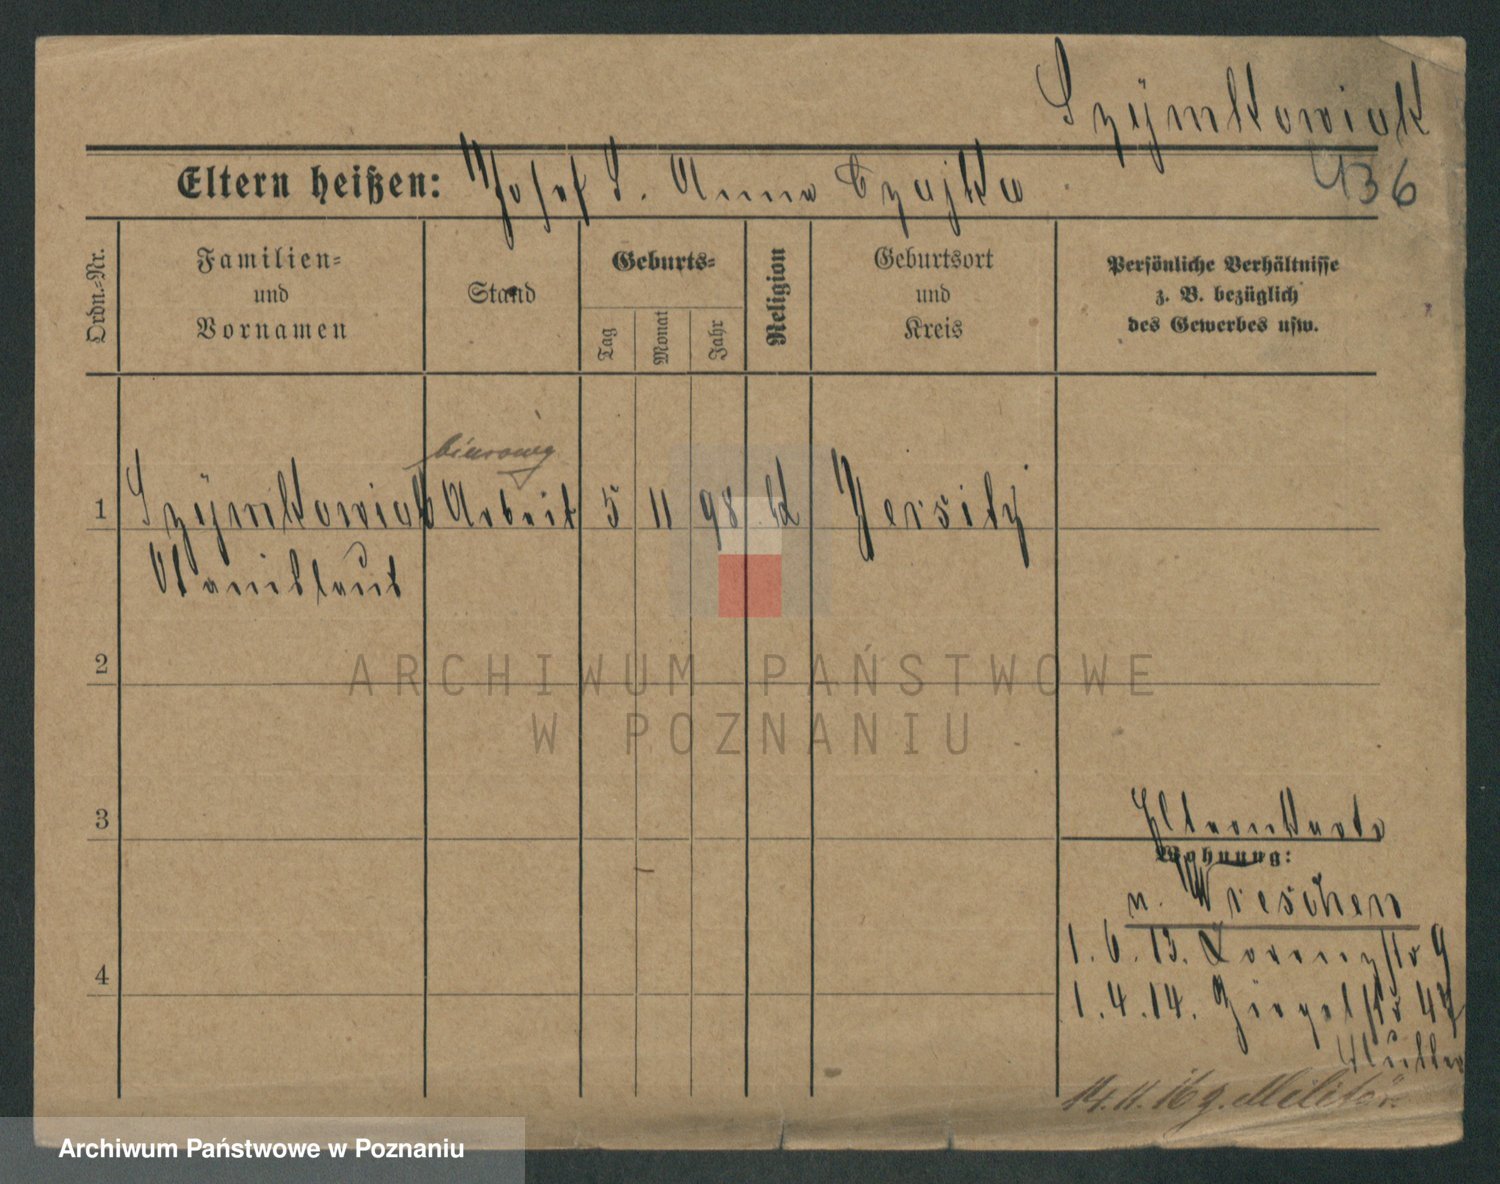 Szymkowiak
Eltern heißen: Josef S. Anna Czajka
436
Ordn.-Nr.
Familien-
und
Vornamen
Stand
Geburts-
Tag
Monat
Jahr
Religion
Geburtsort
und
Kreis
Persönliche Verhältnisse
z. B. bezüglich
des Gewerbes usw.
1 Szymkowiak Arbeit 5 11 98 k Jersitz
Stanislaus
2
3
4
Elternkarte
Wohnung:
n. Wreschen
1.6.13. Lorenzstr 9
1.4.14. Ziegelstr 47
Mutter
14.11.16 z. Militär.
ARCHIWUM PAŃSTWOWE
W POZNANIU
Archiwum Państwowe w Poznaniu